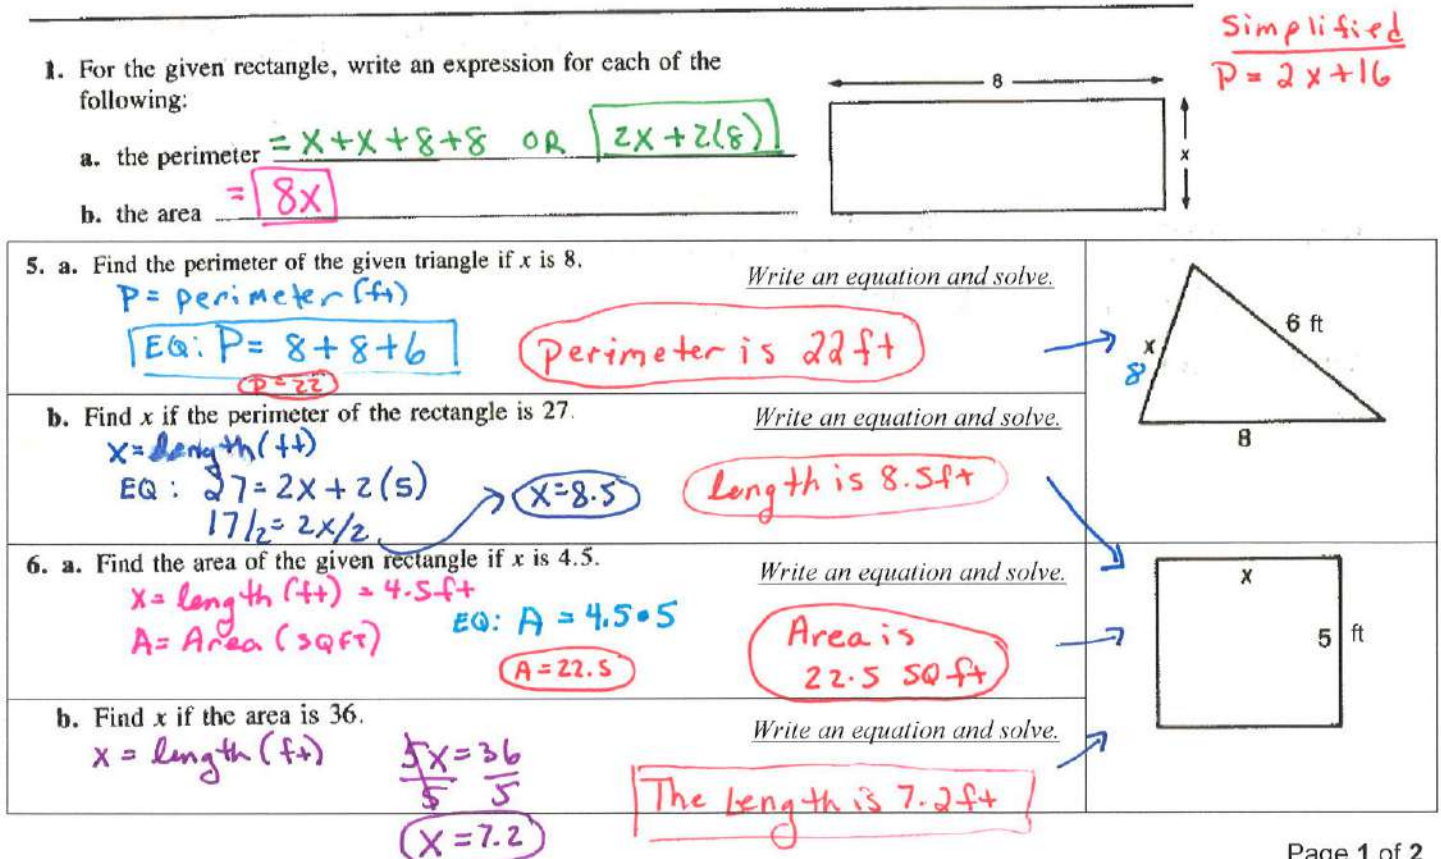 Simplified
P = 2x+16
1. For the given rectangle, write an expression for each of the
following:
a. the perimeter = x+x+8+8 OR 2x+2(8)
b. the area = 8x
8
x
5. a. Find the perimeter of the given triangle if x is 8.
Write an equation and solve.
P= perimeter (ft)
EQ: P= 8+8+6
P=22
Perimeter is 22ft
6 ft
x
8
8
b. Find x if the perimeter of the rectangle is 27.
Write an equation and solve.
x= length (ft)
EQ: 27=2x+2(5)
17/2=2x/2
x=8.5
Length is 8.5ft
6. a. Find the area of the given rectangle if x is 4.5.
Write an equation and solve.
x= length (ft) = 4.5ft
A= Area (SQFT)
EQ: A = 4.5•5
A=22.5
Area is
22.5 SQ ft
x
5 ft
b. Find x if the area is 36.
Write an equation and solve.
x = length (ft)
5x=36
5 5
x=7.2
The Length is 7.2ft
Page 1 of 2